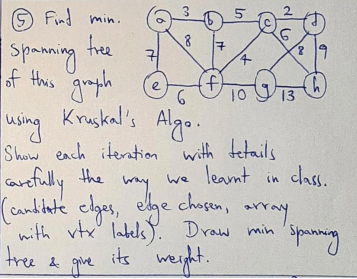 ⑤ Find min. a 3 b 5 c 2 d
spanning tree 7 8 7 4 6 8 9
of this graph e 6 f 10 g 13 h
using Kruskal's Algo.
Show each iteration with details
carefully the way we learnt in class.
(candidate edges, edge chosen, array
with vtx labels). Draw min spanning
tree & give its weight.